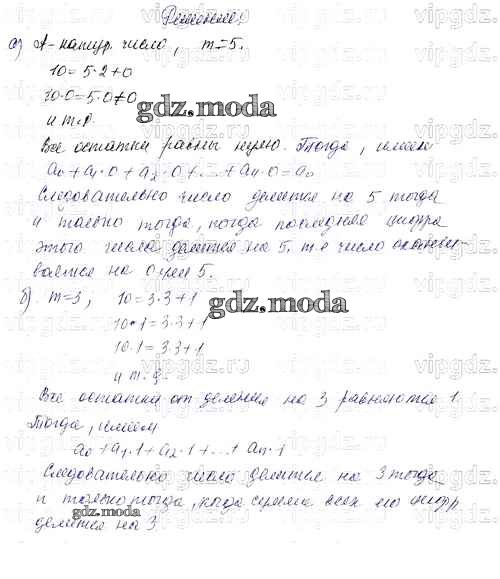 Решение:
а) А-натур. число, m=5.
10=5·2+0
10·0=5·0+0
и т.д.
gdz.moda
Все остатки равны нулю. Тогда, имеем
a₀+a₁·0+a₂·0+...+aₙ·0=a₀
Следовательно число делится на 5 тогда
и только тогда, когда последняя цифра
этого числа делится на 5, т.е число оканчи-
вается на 0 или 5.
б) m=3, 10=3·3+1
gdz.moda
10·1=3·3+1
10·1=3·3+1
и т.д.
Все остатки от деления на 3 равняются 1.
Тогда, имеем
a₀+a₁·1+a₂·1+...+aₙ·1
Следовательно число делится на 3 тогда
и только тогда, когда сумма всех его цифр
gdz.moda
делится на 3.
vipgdz.ru